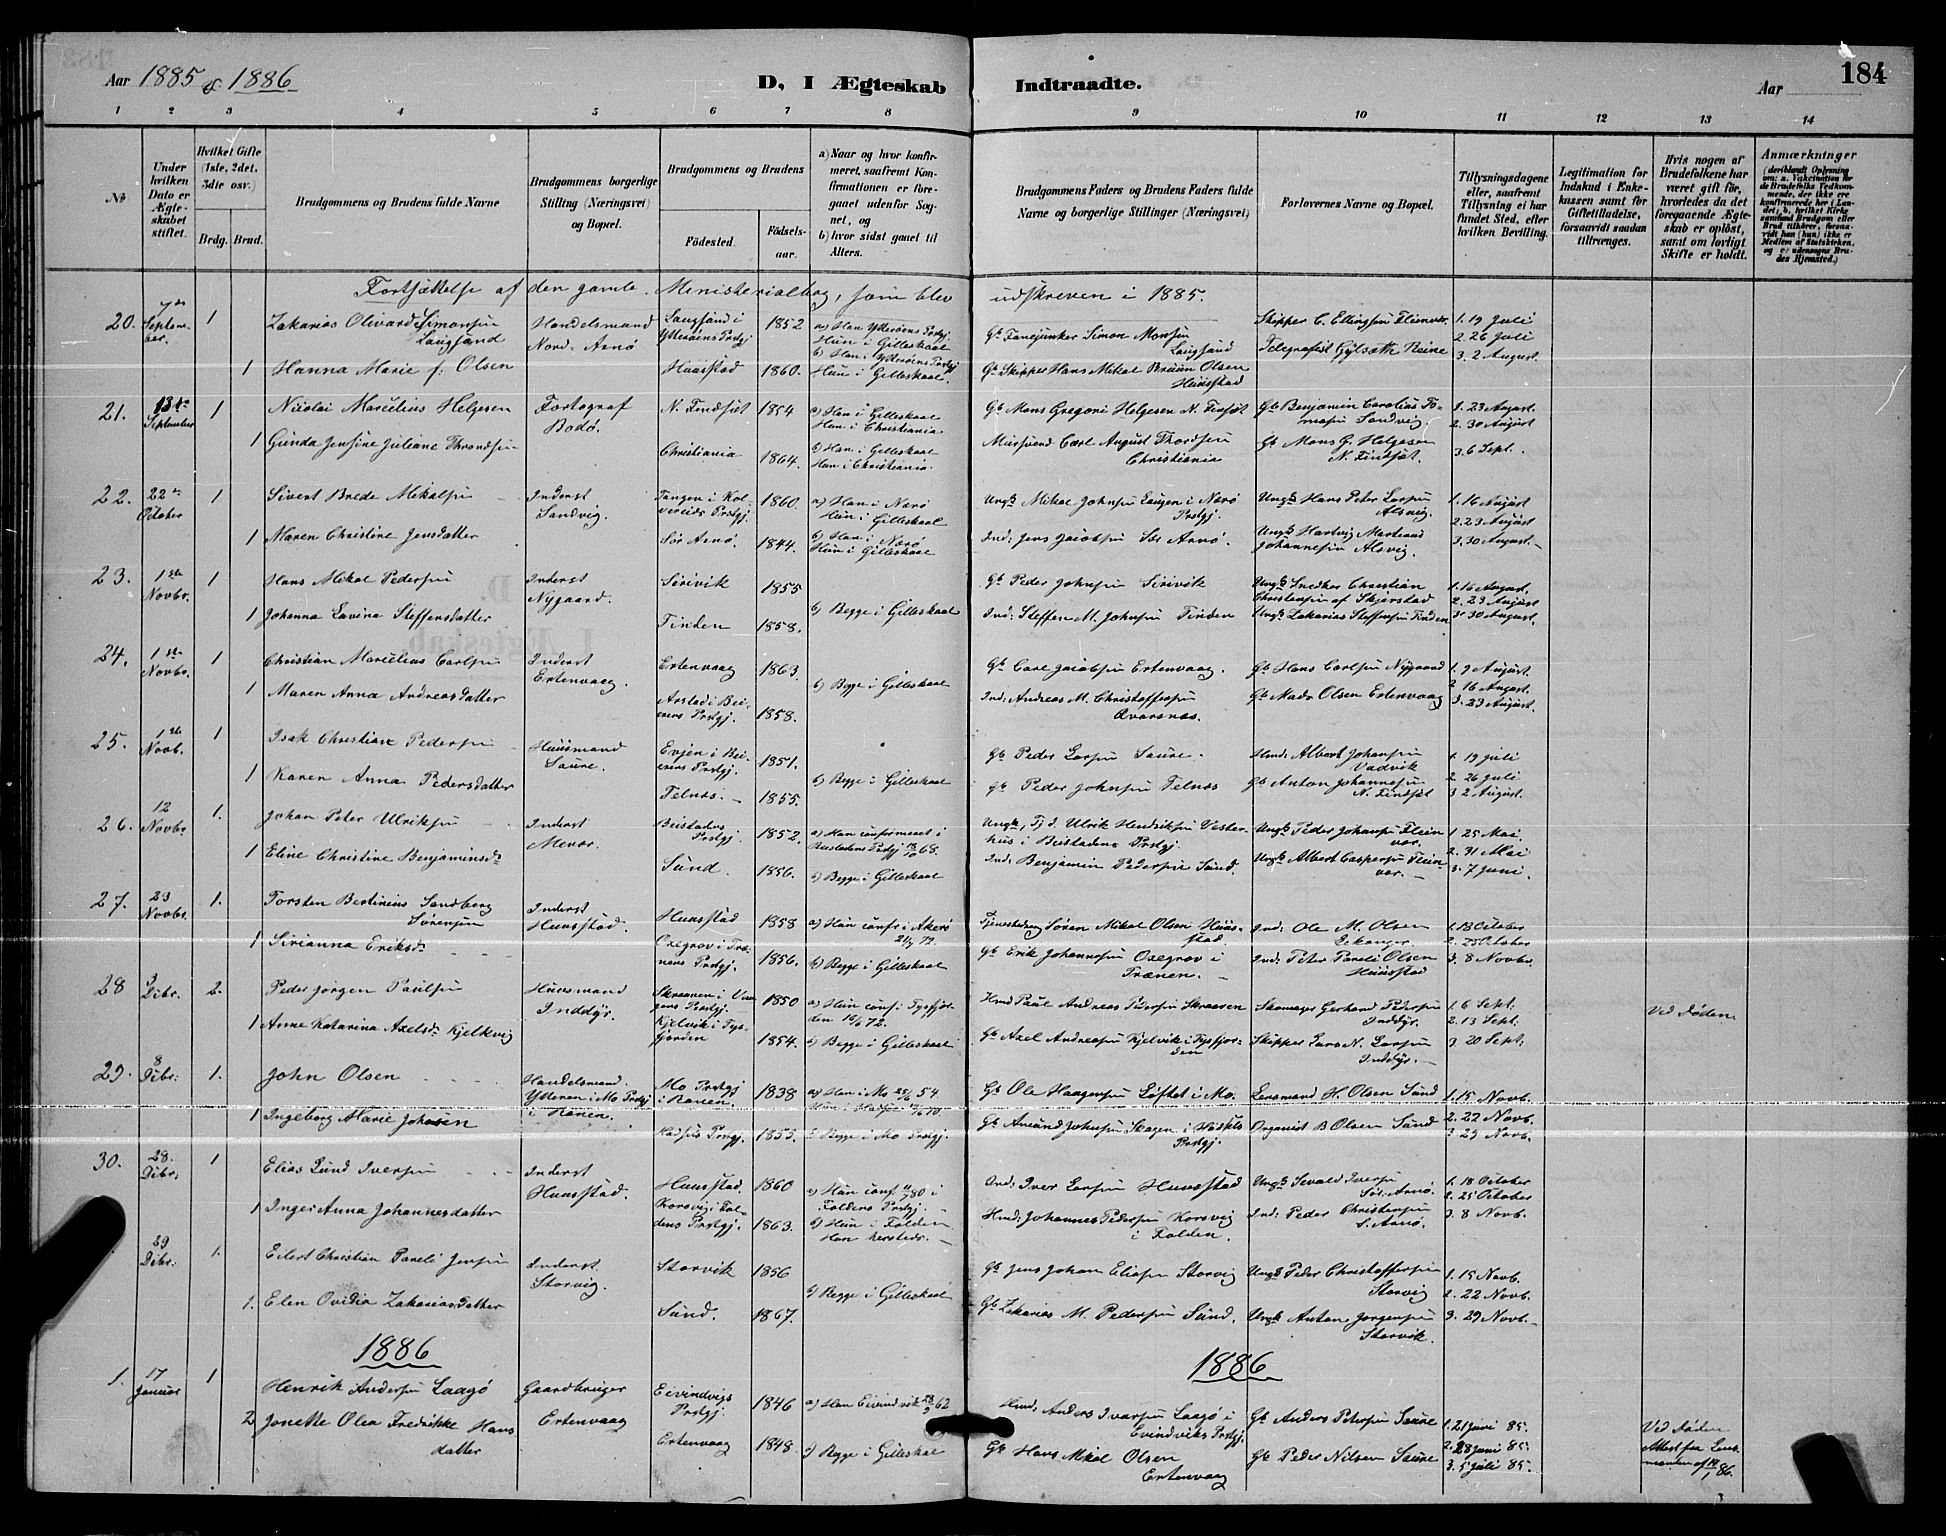 Aar 1885 & 1886
D, I Ægteskab Indtraadte.
Aar
184
1 2 3 4 5 6 7 8 9 10 11 12 13 14
No
Under hvilken Dato er Ægteskabet stiftet.
Hvilket Gifte (1ste, 2det, 3die osv.)
Brdg. Brud.
Brudgommens og Brudens fulde Navne
Brudgommens borgerlige Stilling (Næringsvei) og Bopæl.
Brudgommens og Brudens
Fødested.
Fødselsaar.
a) Naar og hvor konfirmeret, saafremt Konfirmationen er foregaaet udenfor Sognet, og
b) hvor sidst gaaet til Alters.
Brudgommens Faders og Brudens Faders fulde Navne og borgerlige Stillinger (Næringsvei)
Forlovernes Navne og Bopæl.
Tillysningsdagene eller, saafremt Tillysning ei har fundet Sted, efter hvilken Bevilling.
Legitimation for Indskud i Enkekassen samt for Giftetilladelse, forsaavidt saadan tiltrænges.
Hvis nogen af Brudefolkene har været gift før, hvorledes da det foregaaende Ægteskab er opløst, samt om lovligt Skifte er holdt.
Anmærkninger (deriblandt Oplysning om: a. Vaccination for de Brudefolks Vedkommende, der ikke ere konfirmerede her i Landet; b, hvilket Kirkesamfund Brudgom eller Brud tilhører, forsaavidt han (hun) ikke er Medlem af Statskirken, og c. udensogns Brudes Hjemsted.)
Fortsættelse af den gamle Ministerialbog, som blev udskreven i 1885.
20. 7de September 1 Zakarias Olivard Simonsen Laugsand
Handelsmand Nord-Arnø
Laugsand i Ytterøens Prstgj 1852
a) Han Ytterøens Prstgj Hun i Gilleskaal
b) Han i Ytterøens Prstgj Hun i Gilleskaal.
Gb Fanejunker Simon Monsen Laugsand
Skipper C. Ellingsen Fleinvær
1. 19 Juli
2. 26 Juli
3. 2 August.
1 Hanna Marie f: Olsen
Huustad 1860.
Gb Skipper Hans Mikal Bruun Olsen Huustad
Telegrafist Gylseth Reine
21. 13de September 1 Nicolai Marcelius Helgesen
Fortograf Bodø.
N. Findset 1854
a) Han i Gilleskaal Hun i Christiania
Gb Mons Gregori Helgesen N. Finset
Gb Benjamin Carolius Tomasen Sandvig
1. 23 August.
2. 30 August
3. 6 Sept.
1 Gunda Jensine Juliane Throndsen
Christiania 1864.
b) Han i Gilleskaal Hun i Christiania.
Muursvend Carl August Thordsen Christiania
Gb Mons G. Helgesen N. Findset.
22. 22de October 1 Sivert Brede Mikalsen
Inderst Sandvig.
Tangen i Kolvereids Prstgj. 1860.
a) Han i Nærø Hun i Gilleskaal
Ungk Mikal Johnsen Laugen i Nærø Prstgj.
Ungk Hans Peter Larsen Alsvig.
1. 16 August
2. 23 August
3. 30 August.
1 Maren Christine Jensdatter
Sør Arnø. 1844.
b) Han i Nærø Hun i Gilleskaal
Ind: Jens Jacobsen Sør Arnø.
Ungk Hartvig Martinus Johannesen Alsvig.
23. 1ste Novbr. 1 Hans Mikal Pedersen
Inderst Nygaard.
Sirivik 1855
Gb Peder Johnsen Sirivik
Ungk Snedker Christian Christensen af Skjerstad
1. 16 August.
2. 23 August
3. 30 August.
1 Johanna Lavina Steffensdatter
Tinden 1858.
b) Begge i Gilleskaal
Ind: Steffen M. Johnsen Tinden
Ungk Zakarias Steffensen Tinden
24. 1ste Novbr. 1 Christian Marcelius Carlsen
Inderst Ertenvaag.
Ertenvaag 1863.
Gb Carl Jacobsen Ertenvaag.
Gb Hans Carlsen Nygaard
1. 9 August.
2. 16 August.
3. 23 August.
1 Maren Anna Andreasdatter
Arstad i Beierens Prstgj. 1858.
b) Begge i Gilleskaal
Ind: Andreas M. Christoffersen Kvarsnæs.
Gb Mads Olsen Ertenvaag
25. 1ste Novb. 1 Isak Christian Pedersen
Huusmand Saure.
Evjen i Beierens Prstgj. 1851.
Gb Peder Larsen Saure.
Hmd: Albert Johansen Vadvik
1. 19 Juli
2. 26 Juli
3. 2 August.
1 Karen Anna Pedersdatter
Felnæs. 1855.
b) Begge i Gilleskaal
Gb Peder Johnsen Felnæs
Gb Anton Johannesen N. Findset
26. 12 Novbr 1. Johan Peter Ulriksen
Inderst Mevær.
Beistadens Prstgj. 1852.
a) Han confirmeret i Beistadens Prstgj 68.
Ungk, Tj d. Ulrik Hendriksen Vesterhus i Beistadens Prstgj.
Ungk Peder Johansen Fleinvær.
1. 25 Mai
2. 31 Mai
3. 7 Juni.
1 Eline Christine Benjaminsdr
Sund. 1856.
b) Begge i Gilleskaal
Ind: Benjamin Pedersen Sund.
Ungk Albert Caspersen Fleinvær.
27. 23 Novbr. 1. Torsten Bertinius Sandberg Sørensen
Inderst Huusstad.
Huusstad 1858
a) Hun conf: i Akerø 72.
Tjenestedreng Søren Mikal Olsen Huusstad.
Ind: Ole M. Olsen
1. 18 October
2. 25 October
3. 8 Novbr.
1 Sirianna Eriksdr
Oxegrov i Trænens Prstgj. 1856.
b) Begge i Gilleskaal
Gb Erik Johannesen Oxegrov i Trænen.
Ind: Peter Pareli Olsen Huusstad
28 3 Dcbr. 2. Peder Jørgen Paulsen
Huusmand Inddyr.
Skraaven i Vaagens Prstgj. 1850
a) Hun conf: Tysfjorden 72.
Hmd Paul Andreas Pedersen Skraaven
Skomager Gerhard Pedersen Inddyr.
1. 6 Sept.
2. 13 Sept.
3. 20 Sept.
Ved Døden.
1 Anne Katarina Axelsdr Kjelkvig
Kjelvik i Tysfjorden 1854.
b) Begge i Gilleskaal
Gb Axel Andreasen Kjelvik i Tysfjorden
Skipper Lars N. Larsen Inddyr.
29. 8 Dcbr: 1. John Olsen
Handelsmand. Ytteren i Mo Prstgj i Ranen.
Mo Prstgj i Ranen. 1838
a) Han i Mo 54.
Gb Ole Haagensen Løftet i Mo.
Lensmand H. Olsen Sund
1. 15 Novb.
2. 22 Novb.
3. 29 Novb.
1 Ingeborg Marie Johnsen
Hadsels Prstgj. 1855.
b) Begge i Mo Prstgj.
Gb Amund Johnsen Skagen i Hadsels Prstgj.
Organist B Olsen Sund
30. 28. Dcbr. 1 Elias Lund Iversen
Inderst Huusstad.
Huusstad. 1860
a) Hun conf. 80 i Foldens Prstgj.
Ind: Iver Larsen Huusstad
Ungk Sevald Iversen Sør-Arnø.
1. 18 October
2. 25 October
3. 8 Novb.
1 Inger Anna Johannesdatter
Korsvig i Foldens Prstgj. 1863.
b) Hun i Folden Han hersteds.
Hmd: Johannes Pedersen Korsvig i Folden.
Ind: Peder Christensen S. Arnø.
29 Dcbr: 1. Edert Christian Pareli Jensen
Inderst Storvig.
Storvik 1856
Gb Jens Johan Eliasen Storvig
Ungk Peder Christoffersen Storvig
1. 15 Novb.
2. 22 Novb.
3. 29 Novb.
1. Elen Ovidia Zakariasdatter
Sund. 1867.
b) Begge i Gilleskaal
Gb Zakarias M. Pedersen Sund.
Ungk Anton Jørgensen Storvik.
1886 1886
1. 17 Januar 1 Henrik Andersen Laagø
Gaardbruger Ertenvaag
Eivindvigs Prstgj: 1846
a) Han Eivindvik 62
Hmd: Anders Ivarsen Laagø i Evindviks Prstgj.
Gb Anders Petersen Saure
1. 21 Juni 85.
2. 28 Juni 85.
3. 5 Juli 85.
Ved Døden Attest fra Lensmanden af 18/1 86.
2 Jonette Olea Fredrikke Hansdatter
Ertenvaag 1848.
b) Begge i Gilleskaal
Gb Hans Mikal Olsen Ertenvaag
Gb Peder Nilsen Saure